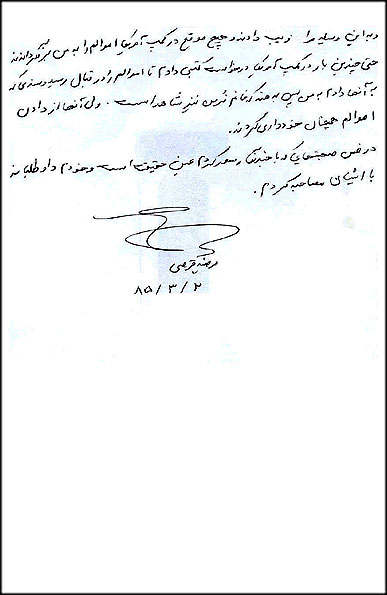 وبه این وسیله مرا فریب دادند و هیچ موقع در کمپ آمریکا اموالم را به من برنگرداندند
حتی چندین بار در کمپ آمریکا درخواست کتبی دادم تا اموالم را در قبال رسید و سندی که
به آنها دادم به من پس بدهند که خانم نیز شاهد است . ولی آنها از دادن
اموالم همچنان خودداری کردند.
در ضمن صحبتهایی که با خبرنگار کردم عین حقیقت است و خودم داوطلبانه
با ایشان مصاحبه کردم .
۸۵/۳/۲